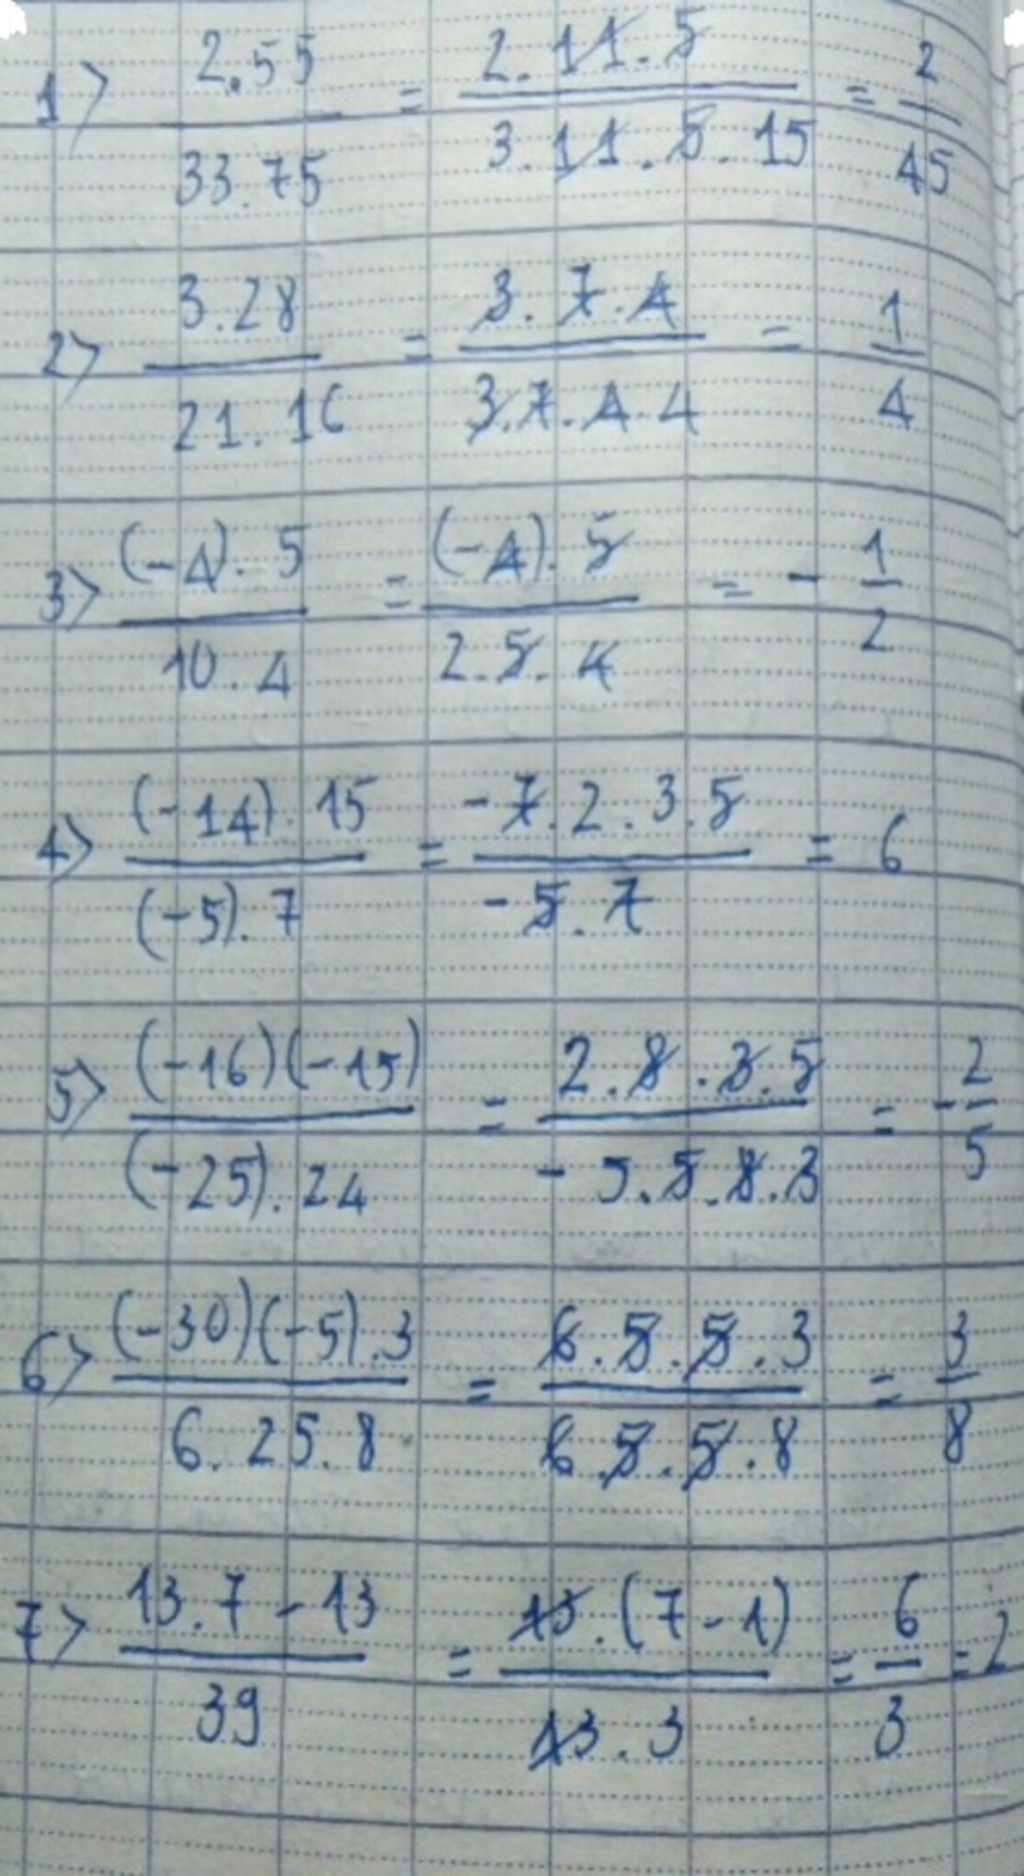 1> 2.55 / 33.75 = 2.11.5 / 3.11.5.15 = 2 / 45
2> 3.28 / 21.16 = 3.7.4 / 3.7.4.4 = 1 / 4
3> (-4).5 / 10.4 = (-4).5 / 2.5.4 = - 1 / 2
4> (-14).15 / (-5).7 = -7.2.3.5 / -5.7 = 6
5> (-16)(-15) / (-25).24 = 2.8.3.5 / -5.5.8.3 = - 2 / 5
6> (-30)(-5).3 / 6.25.8 = 6.5.5.3 / 6.5.5.8 = 3 / 8
7> 13.7-13 / 39 = 13.(7-1) / 13.3 = 6 / 3 = 2